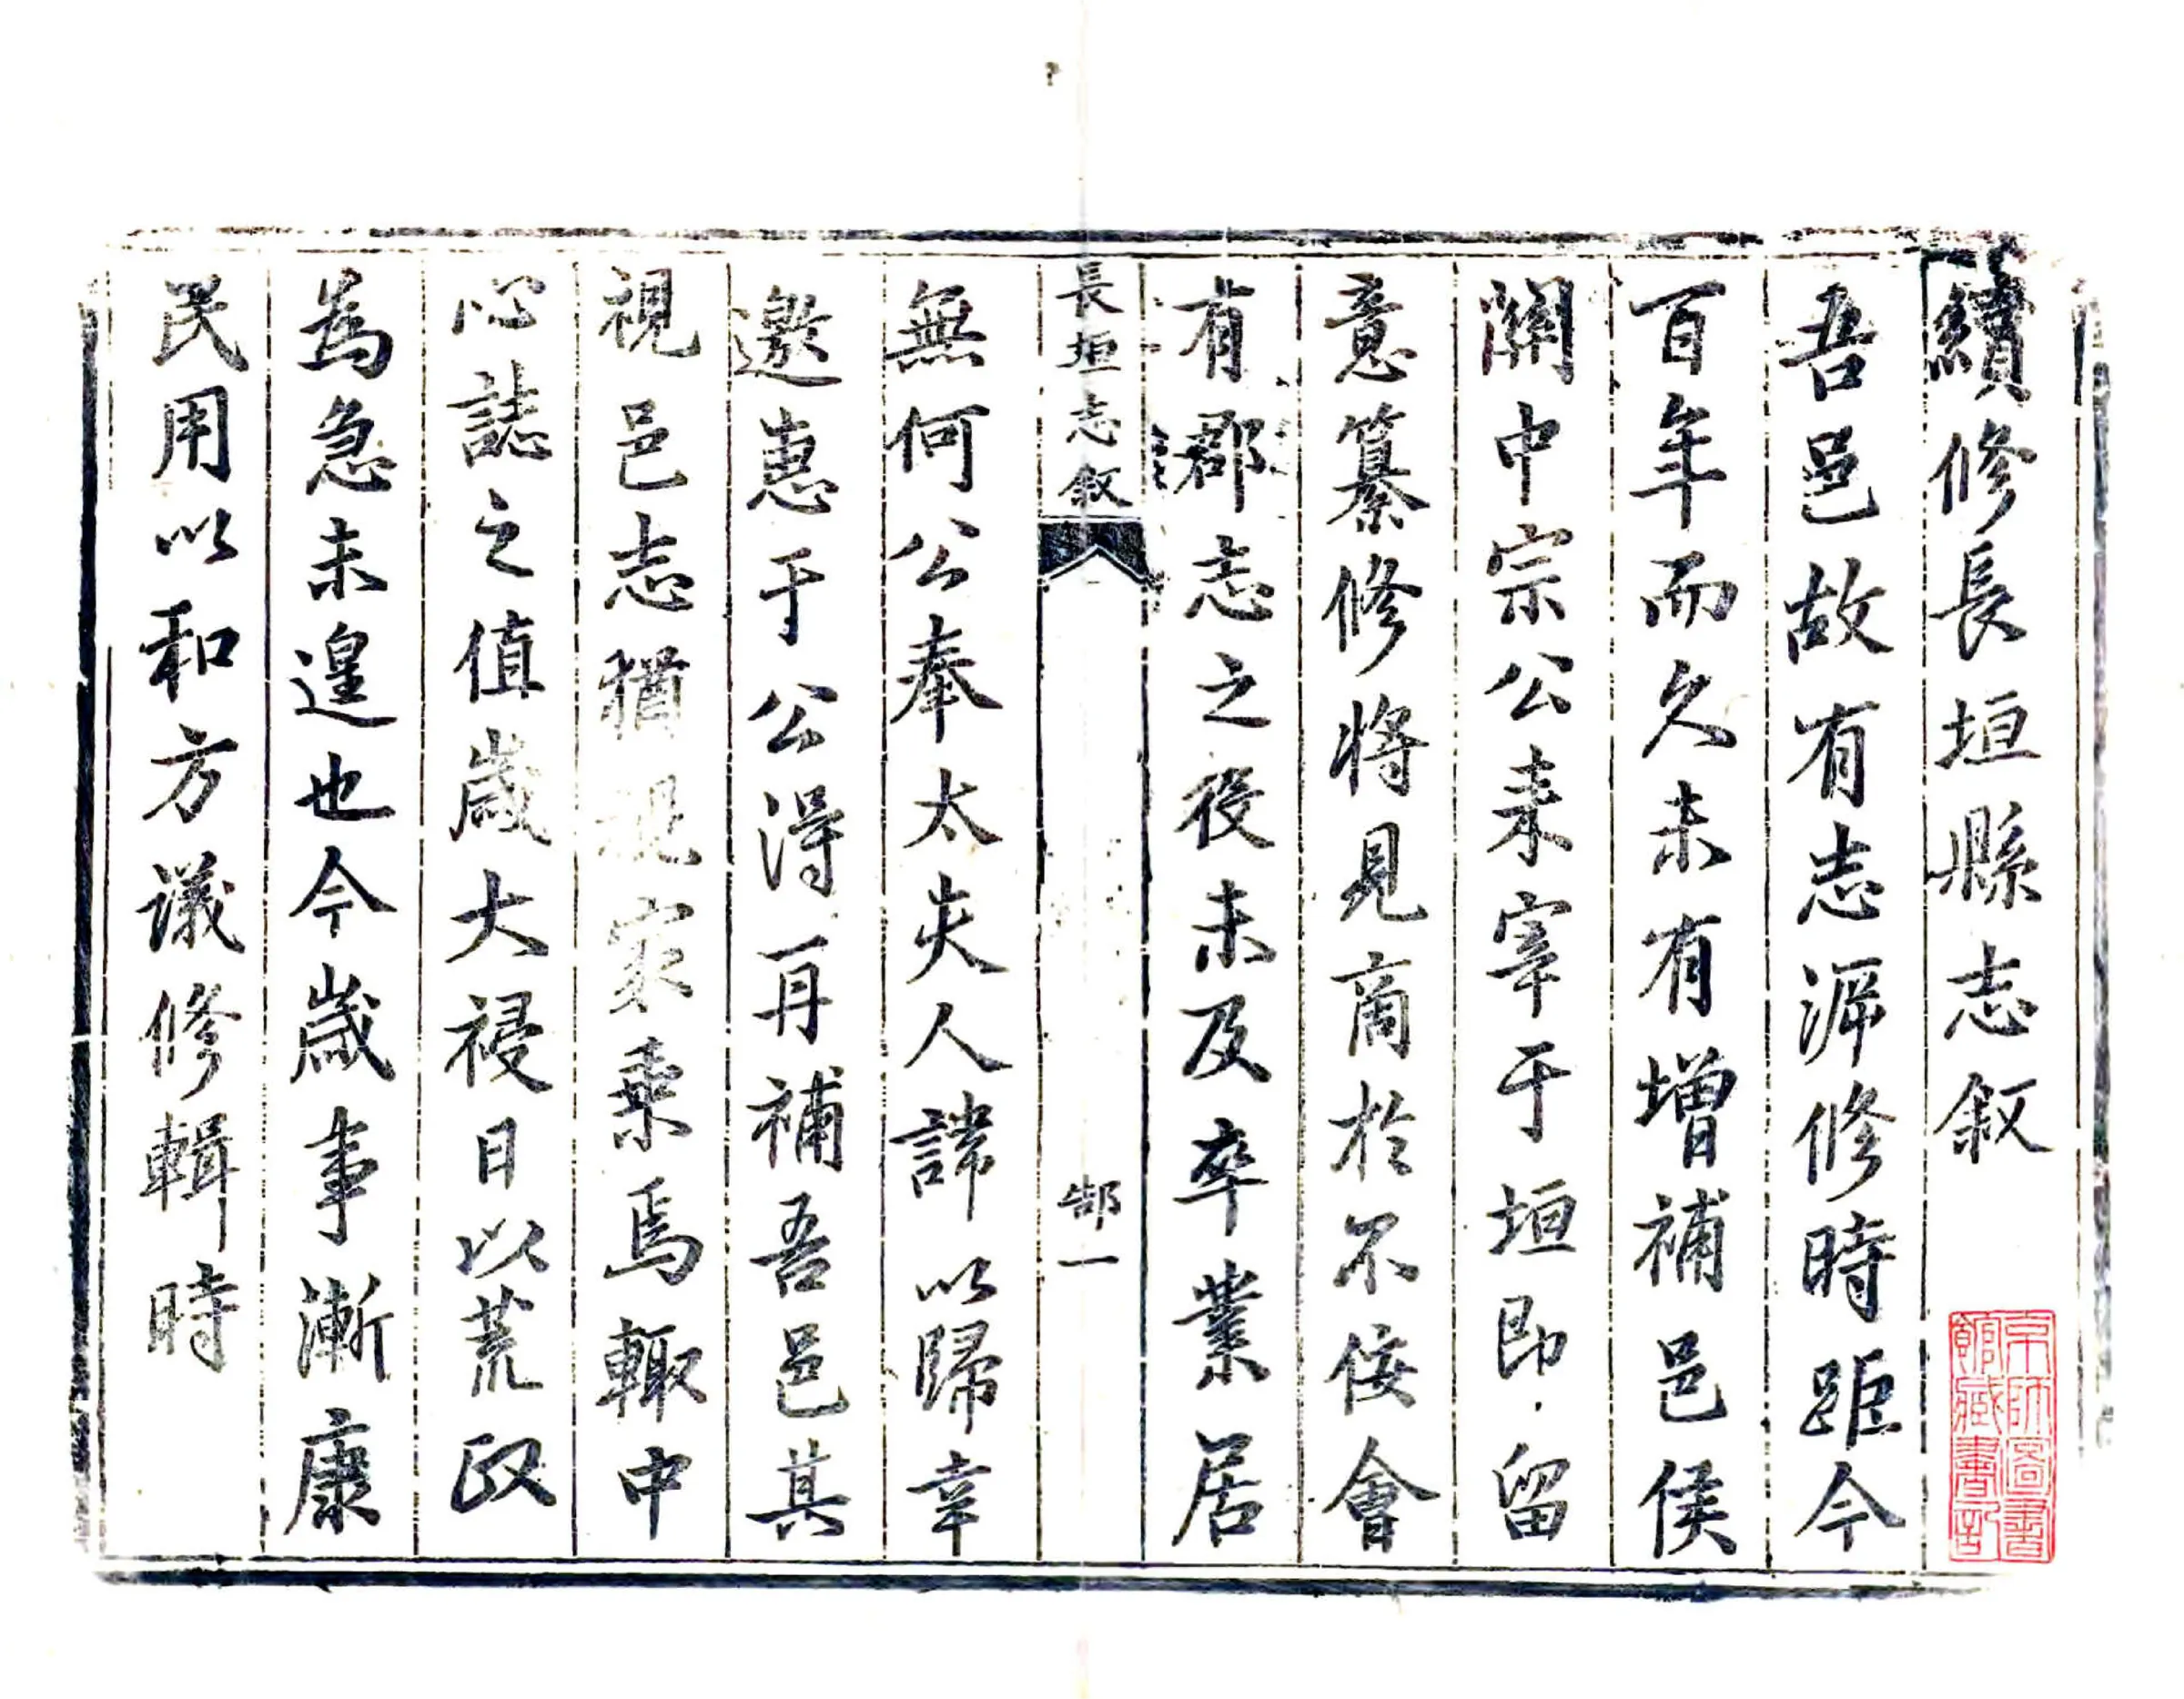 續修長垣縣志敘
吾邑故有志溯修時距今
百年而久未有增補邑侯
關中宗公来宰于垣即留
意纂修將見商於不佞會
有郡志之役未及卒業居
長垣志敘
郜一
無何公奉太夫人諱以歸幸
邀惠于公得再補吾邑其
視邑志猶視家乘焉輙中
心誌之值歲大祲日以荒政
為急未遑也今歲事漸康
民用以和方議修輯時
京師圖書
館藏書記